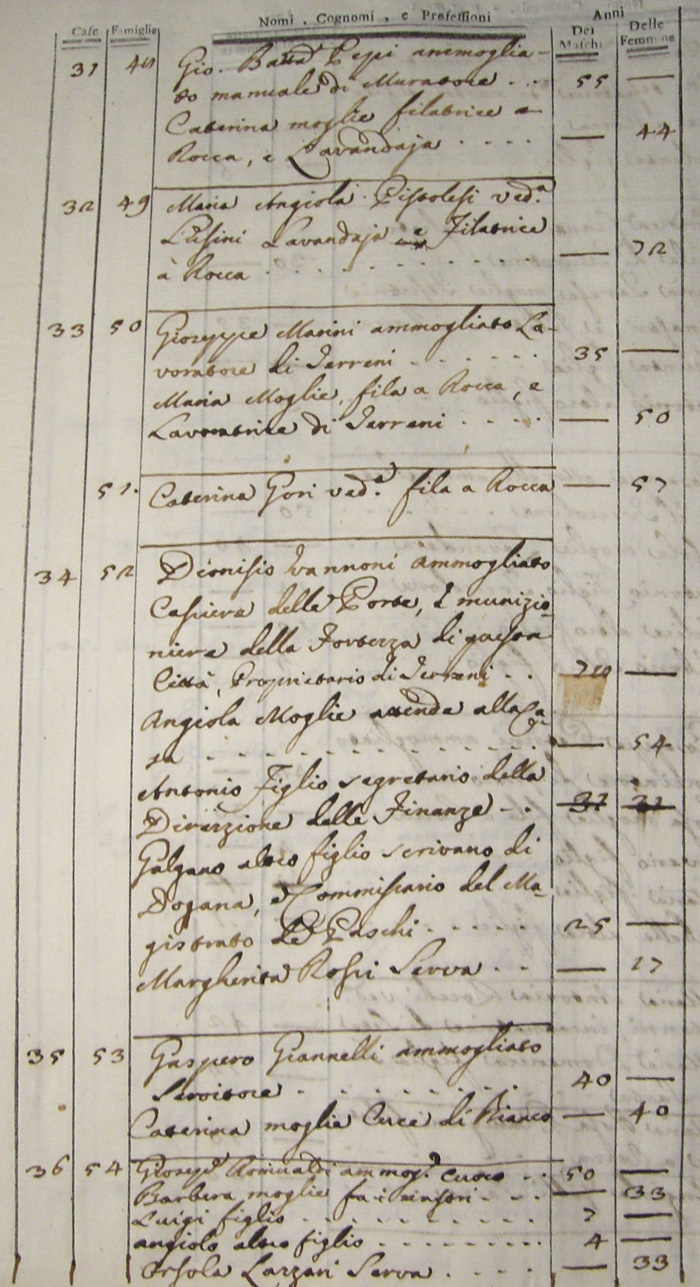 Case Famiglie Nomi, Cognomi, e Professioni Anni
Dei Maschi Delle Femmine
31 Gio. Batta Pepi ammoglia-
to manuale di Muratore . . 55 —
Caterina moglie filatrice a
Rocca, e Lavandaja . . . . — 44
32 49 Maria Angiola Pistolesi ved.a
Lusini Lavandaja e Filatrice
à Rocca . . . . . . . . . — 72
33 50 Gioseppe Marini ammogliato La-
voratore di Terreni . . . . . . 35 —
Maria Moglie, fila a Rocca, e
Lavoratrice di Terreni . . . . — 50
51. Caterina Gori ved.a fila a Rocca — 57
34 52 Dionisio Ivannoni ammogliato
delle Porte, e munizio-
niere della Fortezza di
Città, Proprietario di Terreni . . —
Angiola Moglie attende alla Ca-
sa . . . . . . . . . . — 54
Antonio Figlio segretario della
Direzzione delle Finanze - . .
Galgano altro figlio scrivano di
Dogana, e Commissario del Ma-
gistrato de Paschi . . . . . 25 —
Margherita Rossi Serva . . — 17
35 53 Gaspero Giannelli ammogliato
Servitore . . . . . . . . 40 —
Caterina moglie Cuce di Bianco — 40
36 54 Giosepe Romualdi ammog.o cuoco . . 50 —
Barbera moglie fa i . . . — 33
Luigi figlio . . . . . . . . 7 —
angiolo altro figlio . . . . . . . 4 —
Orsola Lazzari Serva . . . . — 33